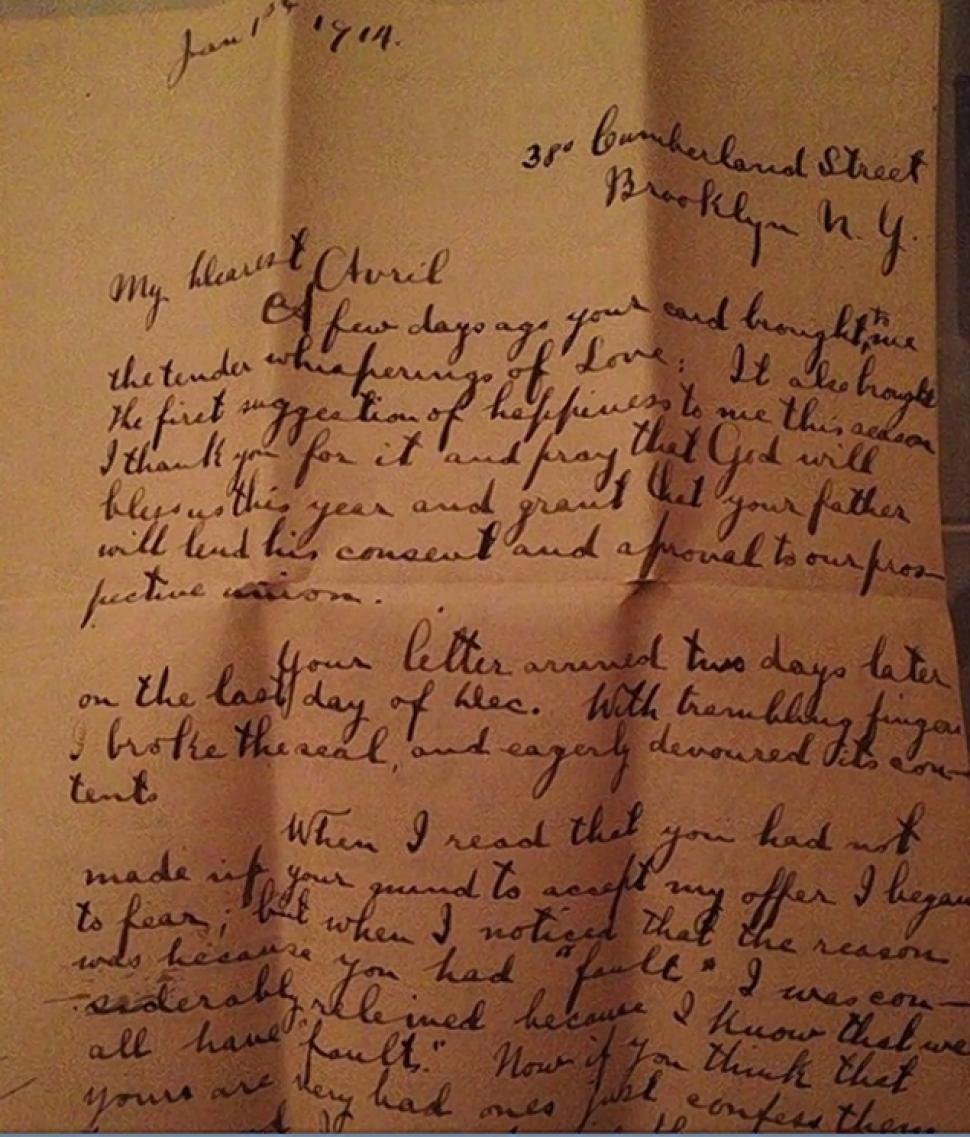 Jan 1st 1914.
380 Cumberland Street
Brooklyn N. Y.
My Dearest Avril
A few days ago your card brought to me
the tender whisperings of Love; It also brought
the first suggestion of happiness to me this season
I thank you for it and pray that God will
bless us this year and grant that your father
will lend his consent and aproval to our pros-
pective union.
Your letter arrived two days later
on the last day of Dec. With trembling fingers
I broke the seal, and eagerly devoured its con-
tents
When I read that you had not
made up your mind to accept my offer I began
to fear; but when I noticed that the reason
was because you had "fault" I was con-
siderably releived because I know that we
all have "fault." Now if you think that
yours are very bad ones just confess them